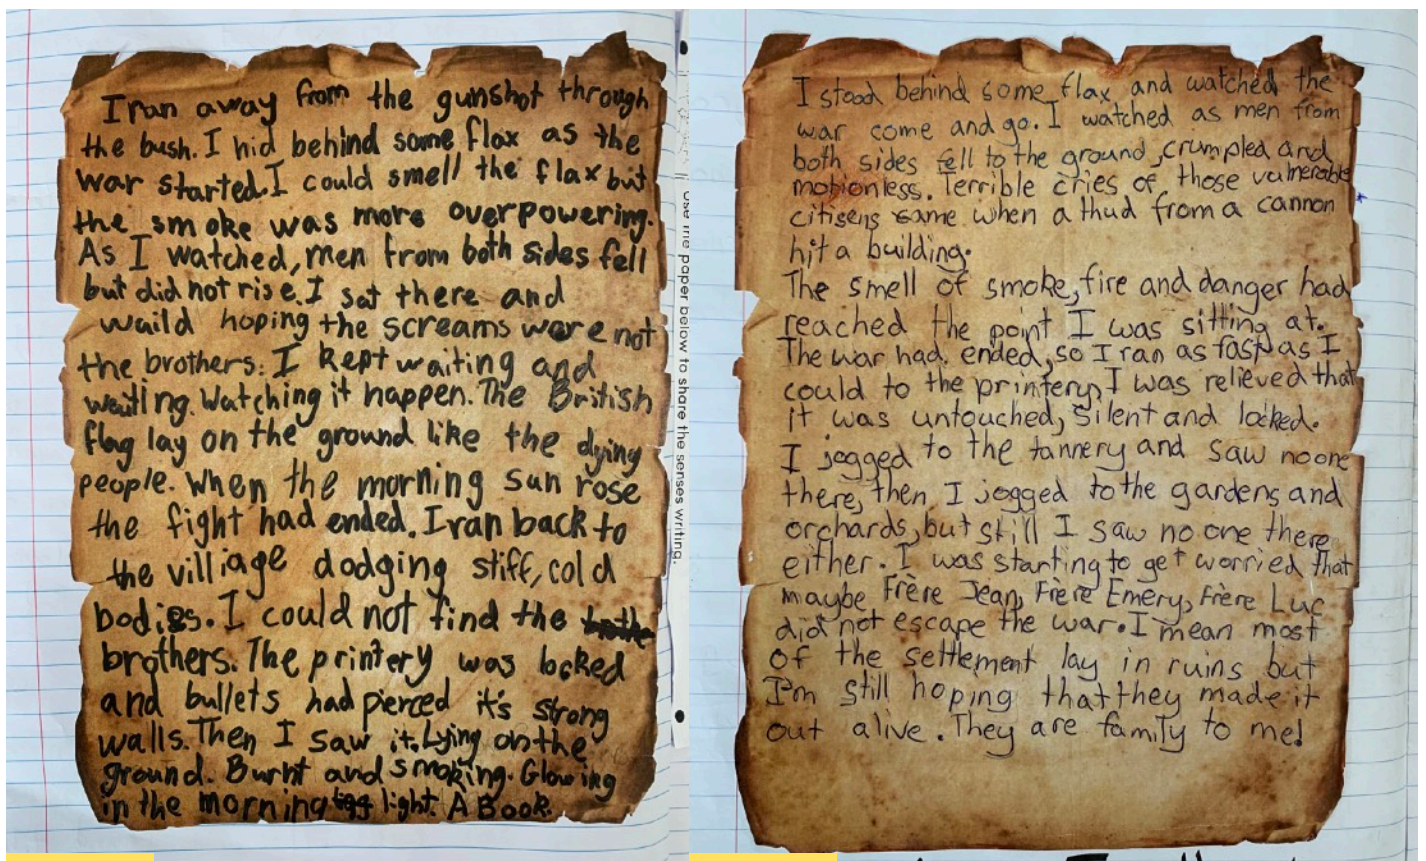 I ran away from the gunshot through
the bush. I hid behind some flax as the
war started. I could smell the flax but
the smoke was more overpowering.
As I watched, men from both sides fell
but did not rise. I sat there and
waild hoping the screams were not
the brothers. I kept waiting and
waiting. Watching it happen. The British
flag lay on the ground like the dying
people. When the morning sun rose
the fight had ended. I ran back to
the villiage dodging stiff, cold
bodies. I could not find the
brothers. The printery was locked
and bullets had pierced it's strong
walls. Then I saw it. Lying on the
ground. Burnt and smoking. Glowing
in the morning light. A Book.
use the paper below to share the senses writing.
I stood behind some flax and watched the
war come and go. I watched as men from
both sides fell to the ground, crumpled and
motionless. Terrible cries of those vulnerable
citisens came when a thud from a cannon
hit a building.
The smell of smoke, fire and danger had
reached the point I was sitting at.
The war had ended, so I ran as fast as I
could to the printery, I was relieved that
it was untouched, silent and locked.
I jogged to the tannery and saw no one
there, then I jogged to the gardens and
orchards, but still I saw no one there
either. I was starting to get worried that
maybe Frère Jean, Frère Emery, Frère Luc
did not escape the war. I mean most
of the settlement lay in ruins but
I'm still hoping that they made it
out alive. They are family to me!